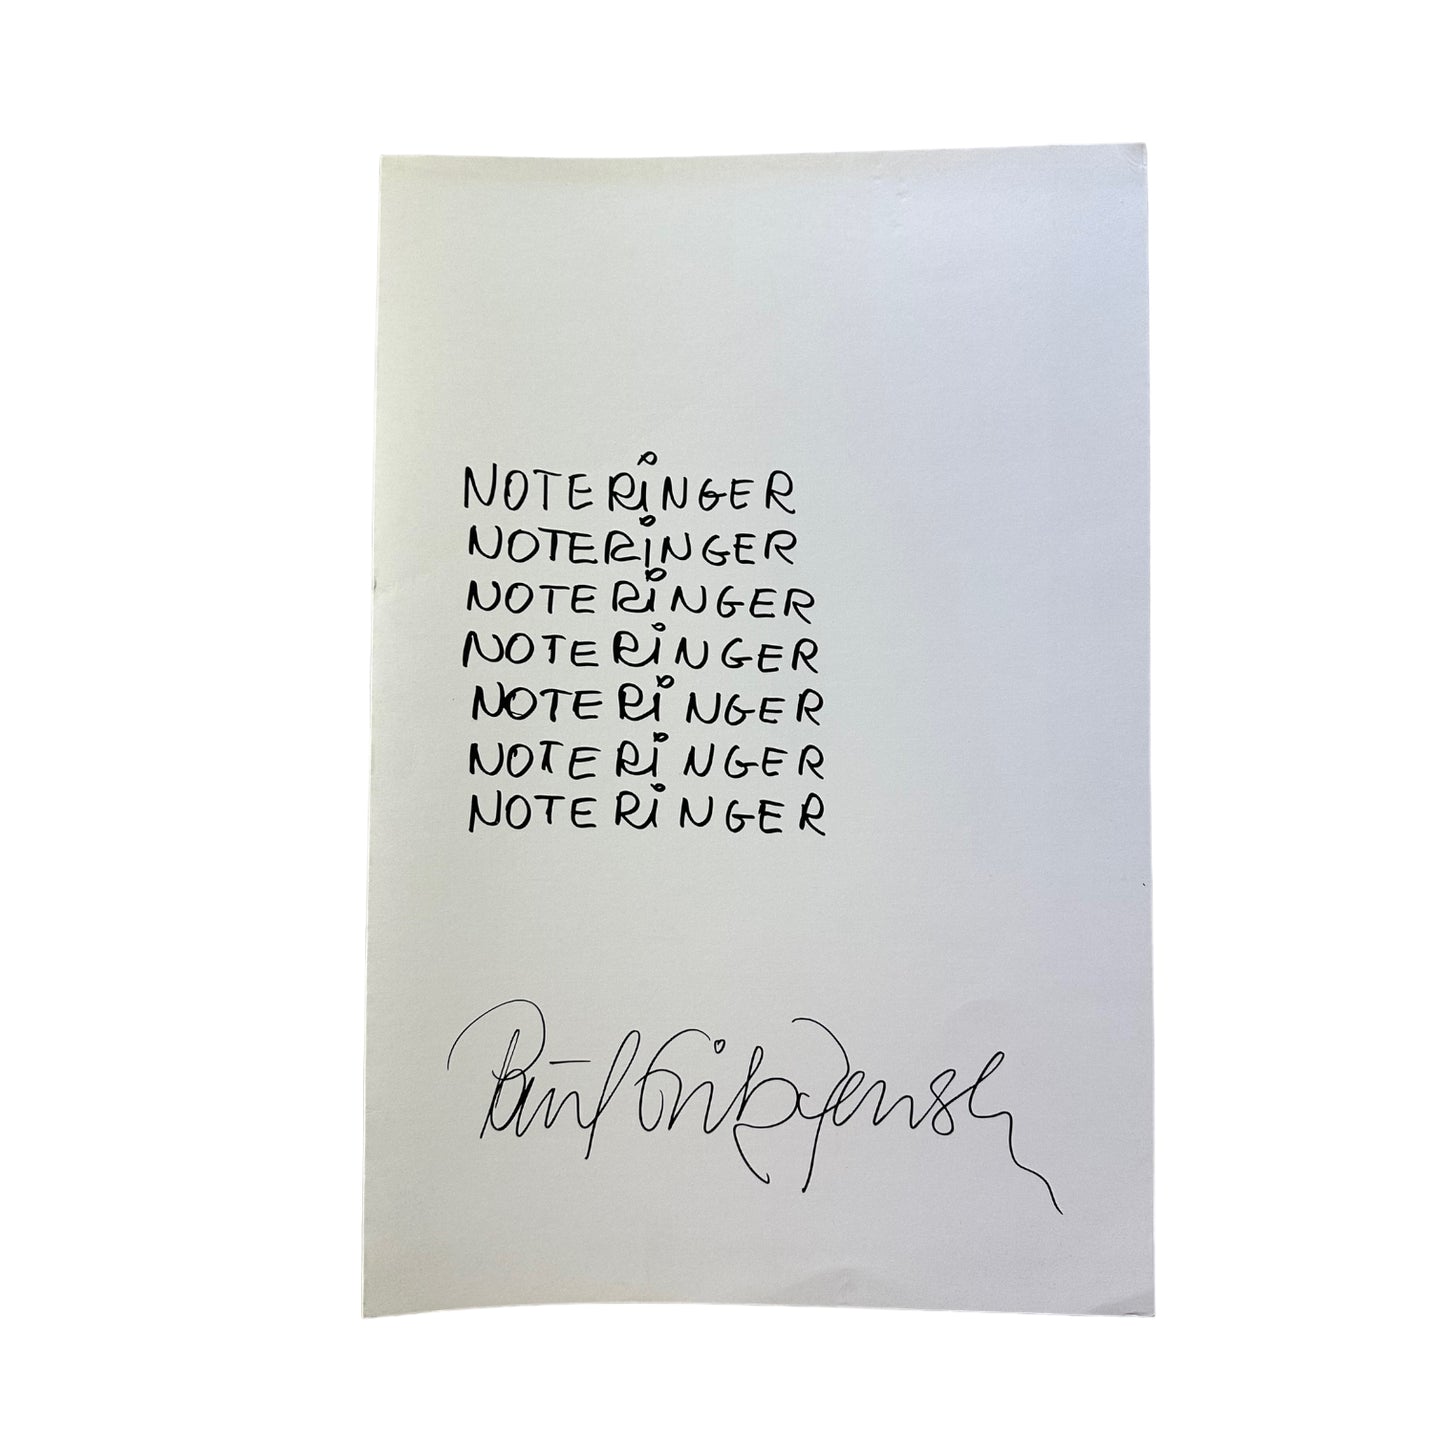 NOTERiNGER
NOTERiNGER
NOTERiNGER
NOTERiNGER
NOTERiNGER
NOTERiNGER
NOTERiNGER